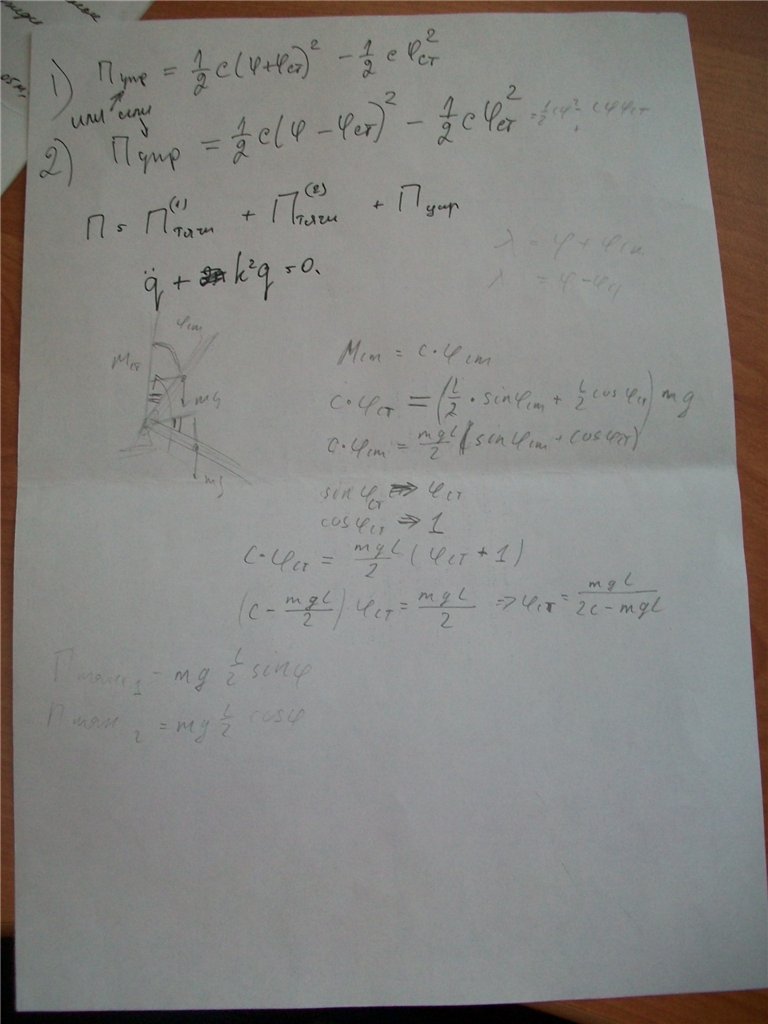 1) Пупр = 1/2 c(φ+φст)² - 1/2 c φст²
или или
2) Пупр = 1/2 c(φ - φст)² - 1/2 c φст² = 1/2 cφ² - cφφст
П = Птяги⁽¹⁾ + Птяги⁽²⁾ + Пупр
λ = φ + φст
q̈ + k²q = 0.
λ = φ - φст
φст
Mст
mg
mg
Mст = c·φст
c·φст = (L/2 · sinφст + L/2 cosφст) mg
c·φст = mgL/2 (sinφст + cosφст)
sinφст ⇒ φст
cosφст ⇒ 1
c·φст = mgL/2 (φст + 1)
(c - mgL/2) φст = mgL/2 ⇒ φст = mgL/(2c - mgL)
= mg L/2 sinφ
= mg L/2 cosφ